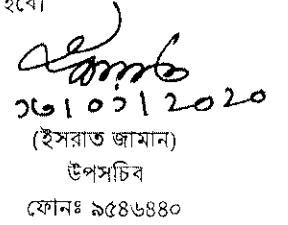 হবে।
১৬|০১|২০২০
(ইসরাত জামান)
উপসচিব
ফোনঃ ৯৫৪৬৪৪০